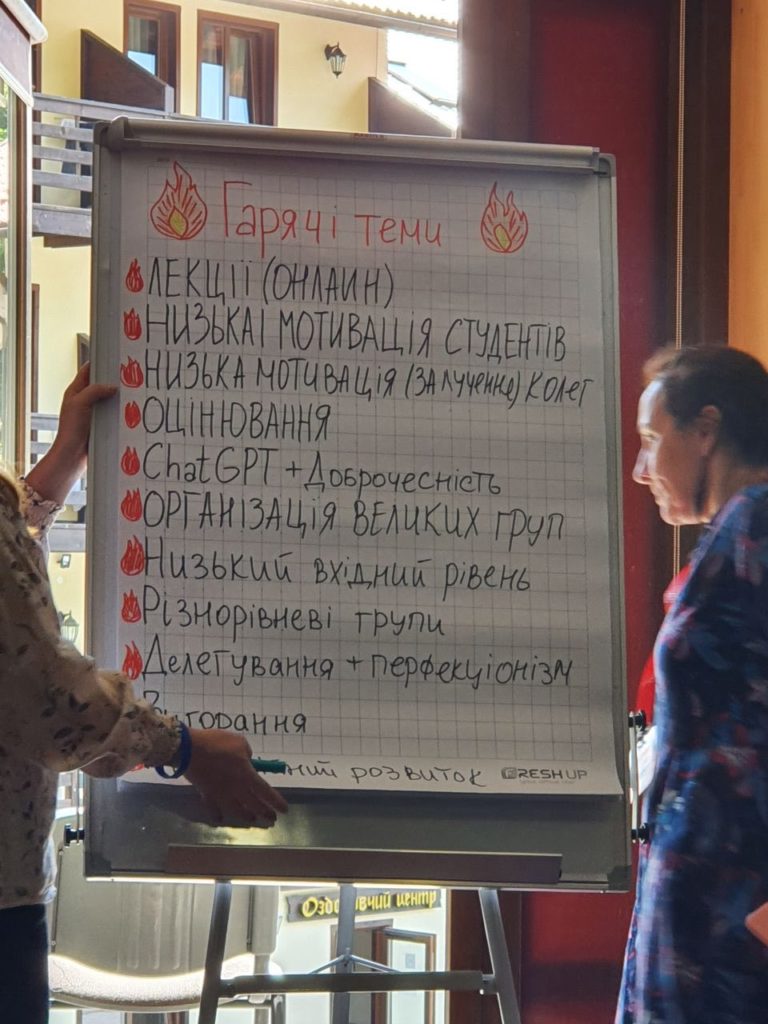 Гарячі теми
ЛЕКЦІЇ (ОНЛАЙН)
НИЗЬКАІ МОТИВАЦІЯ СТУДЕНТІВ
НИЗЬКА МОТИВАЦІЯ (ЗАЛУЧЕННЯ) КОЛЕГ
ОЦІНЮВАННЯ
ChatGPT + Доброчесність
ОРГАНІЗАЦІЯ ВЕЛИКИХ ГРУП
Низький вхідний рівень
Різнорівневі групи
Делегування + перфекціонізм
розвиток
FRESH UP
Оздоровчий центр